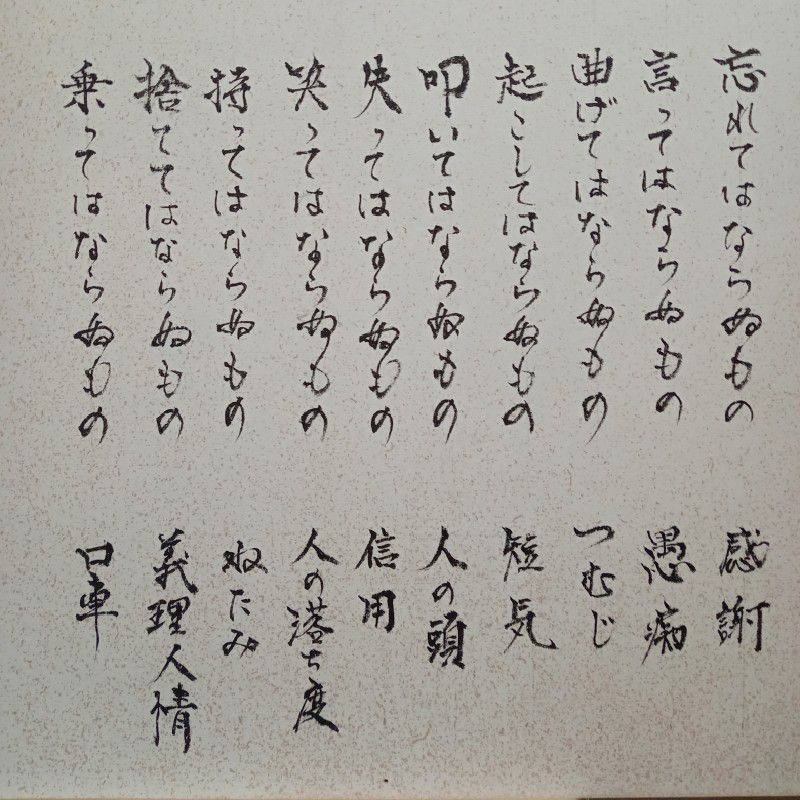 忘れてはならぬもの 感謝
言ってはならぬもの 愚痴
曲げてはならぬもの つむじ
起こしてはならぬもの 短気
叩いてはならぬもの 人の頭
失ってはならぬもの 信用
笑ってはならぬもの 人の落ち度
持ってはならぬもの ねたみ
捨ててはならぬもの 義理人情
乗ってはならぬもの 口車